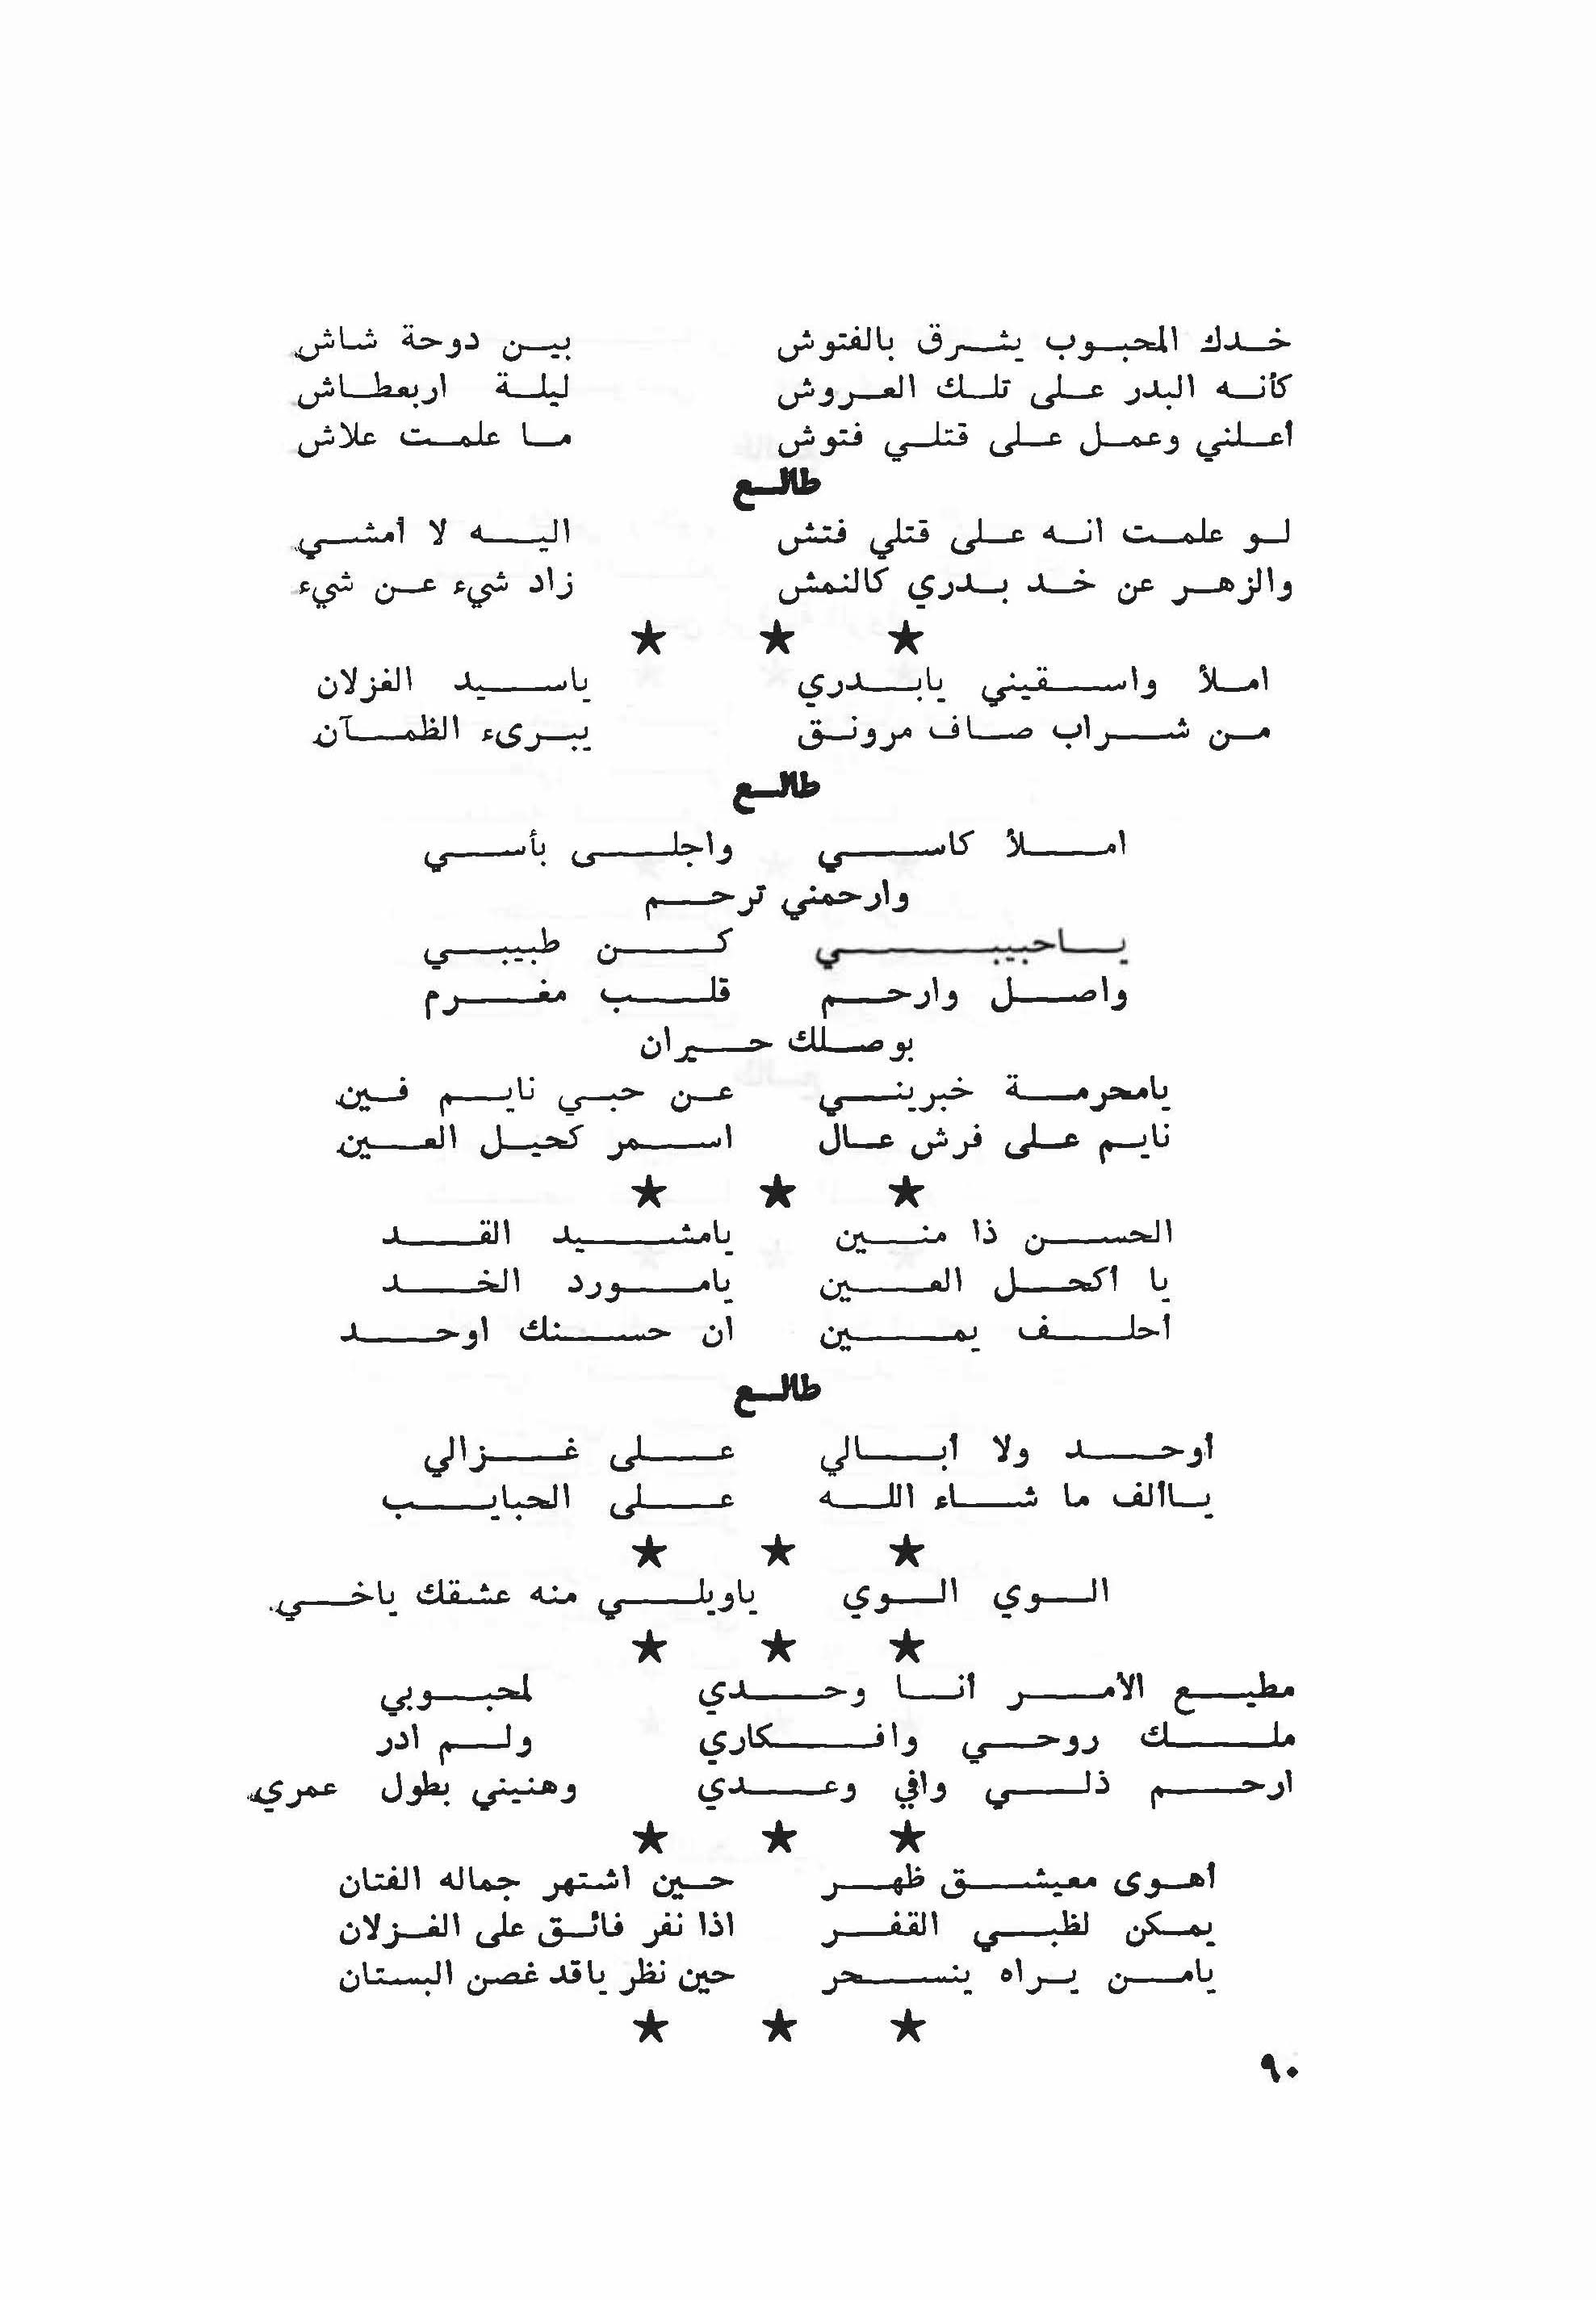 خدك المحبوب يشرق بالفتوش بين دوحة شاش
كأنه البدر على تلك العروش ليلة اربعطاش
أعلني وعمل على قتلي فتوش ما علمت علاش
طالع
لو علمت انه على قتلي فتش اليه لا أمشي
والزهر عن خد بدري كالنمش زاد شيء عن شيء
★ ★ ★
املأ واسقيني يابدري ياسيد الغزلان
من شراب صاف مرونق يبرىء الظمآن
طالع
املأ كاسي واجلى بأسي
وارحمني ترحم
ياحبيبي كن طبيبي
واصل وارحم قلب مغرم
بوصلك حيران
يامحرمة خبريني عن حبي نايم فين
نايم على فرش عال اسمر كحيل العين
★ ★ ★
الحسن ذا منين يامشيد القد
يا أكحل العين يامورد الخد
أحلف يمين ان حسنك اوحد
طالع
أوحد ولا أبالي على غزالي
ياألف ما شاء الله على الحبايب
★ ★ ★
الوي الوي ياويلي منه عشقك ياخي
★ ★ ★
مطيع الأمر أنا وحدي لمحبوبي
ملك روحي وافكاري ولم ادر
ارحم ذلي وافي وعدي وهنيني بطول عمري
★ ★ ★
أهوى معيشق ظهر حين اشتهر جماله الفتان
يمكن لظبي القفر اذا نفر فائق على الغزلان
يامن يراه ينسحر حين نظر ياقد غصن البستان
★ ★ ★
٩٠